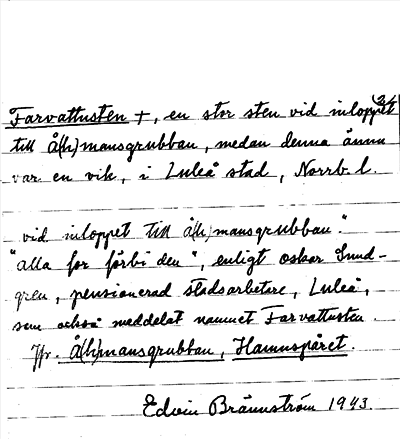 Farvattusten +, en stor sten vid inloppet
till Å(h)mansgrubban, medan denna ännu
var en vik, i Luleå stad, Norrb. l.
vid inloppet till å(h)mansgrubban."
"alla for förbi den", enligt oskar Sund-
gren, pensionerad stadsarbetare, Luleå,
som också meddelat namnet Farvattusten.
Jfr. Å(h)mansgrubban, Hamnspåret.
Edvin Brännström 1943.